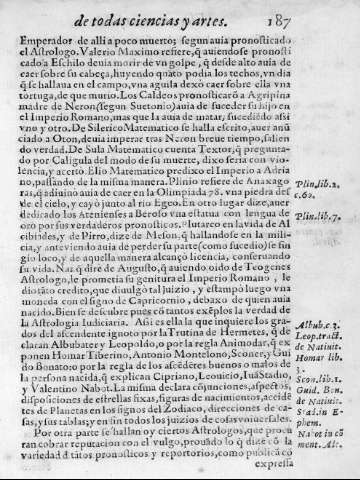 de todas ciencias y artes. 187
Emperador de alli a poco muerto; segun auia pronosticado
el Astrologo. Valerio Maximo refiere, q̃ auiendose pronosti-
cado a Eschilo deuia morir de vn golpe, q̃ desde alto auia de
caer sobre su cabeça, huyendo quāto podia los techos, vn dia
q̃ se hallaua en el campo, vna aguila dexò caer sobre ella vna
tortuga, de que murio. Los Caldeos pronosticarō a Agripina
madre de Neron (segun Suetonio) auia de suceder su hijo en
el Imperio Romano, mas que la auia de matar, sucediēdo assi
vno y otro. De Silerico Matematico se halla escrito, auer anū
ciado a Oton, deuia imperar tras Neron breue tiempo, salien
do verdad. De Sula Matematico cuenta Textor, q̃ pregunta-
do por Caligula del modo de su muerte, dixo seria con vio-
lencia, y acertò. Elio Matematico predixo el Imperio a Adria
no, passando de la misma manera. Plinio refiere de Anaxago
ras, q̃ adiuinò auia de caer en la Olimpiada 78. vna piedra des
de el cielo, y cayò junto al rio Egeo. En otro lugar dize, auer
dedicado los Atenienses a Beroso vna estatua con lengua de
oro por sus verdaderos pronosticos. Plutarco en la vida de Al
cibiades, y de Pirro, dize de Meton, q̃ hallandose en la mili-
cia, y anteviendo auia de perder su parte (como sucedio) se fin
gio loco, y de aquella manera alcançò licencia, conseruando
su vida. Mas q̃ dirè de Augusto, q̃ auiendo oido de Teogenes
Astrologo, le prometia su genitura el Imperio Romano, le
dio tāto credito, que diuulgò tal juizio, y estampò luego vna
moneda con el signo de Capricornio, debaxo de quien auia
nacido. Bien se descubre pues cō tantos exēplos la verdad de
la Astrologia Iudiciaria. Assi es ella la que inquiere los gra-
dos del ascendente ignoto por la Trutina de Hermetes, q̃ de
claran Albubater y Leopoldo, o por la regla Animodar, q̃ ex
ponen Homar Tiberino, Antonio Montelono, Sconer, y Gui
do Bonato: o por la regla de los accidētes buenos o malos de
la persona nacida, q̃ explican Cipriano, Leonicio, Iuā Stadio,
y Valentino Nabot. La misma declara cōjunciones, aspectos,
disposiciones de estrellas fixas, figuras de nacimientos, accidē
tes de Planetas en los signos del Zodiaco, direcciones de ca-
sas, y sus tablas; y en sin todos los juizios de cosas vniuersales.
Por otra parte se hallan oy ciertos Astrologos, que procu
ran cobrar reputacion con el vulgo, prouādo lo q̃ dizē cō la
variedad d tātos pronosticos y reportorios, como publicā cō
expressa
Plin. lib. 2.
c. 60.
Plin. lib. 7.
Albub. c. 3.
Leop. tract.
de Natiuit.
Homar lib.
3.
Scon. lib. 1.
Guid. Bon.
de Natiuit.
Stad. in E-
phem.
Nabot in cō
ment. Alc.